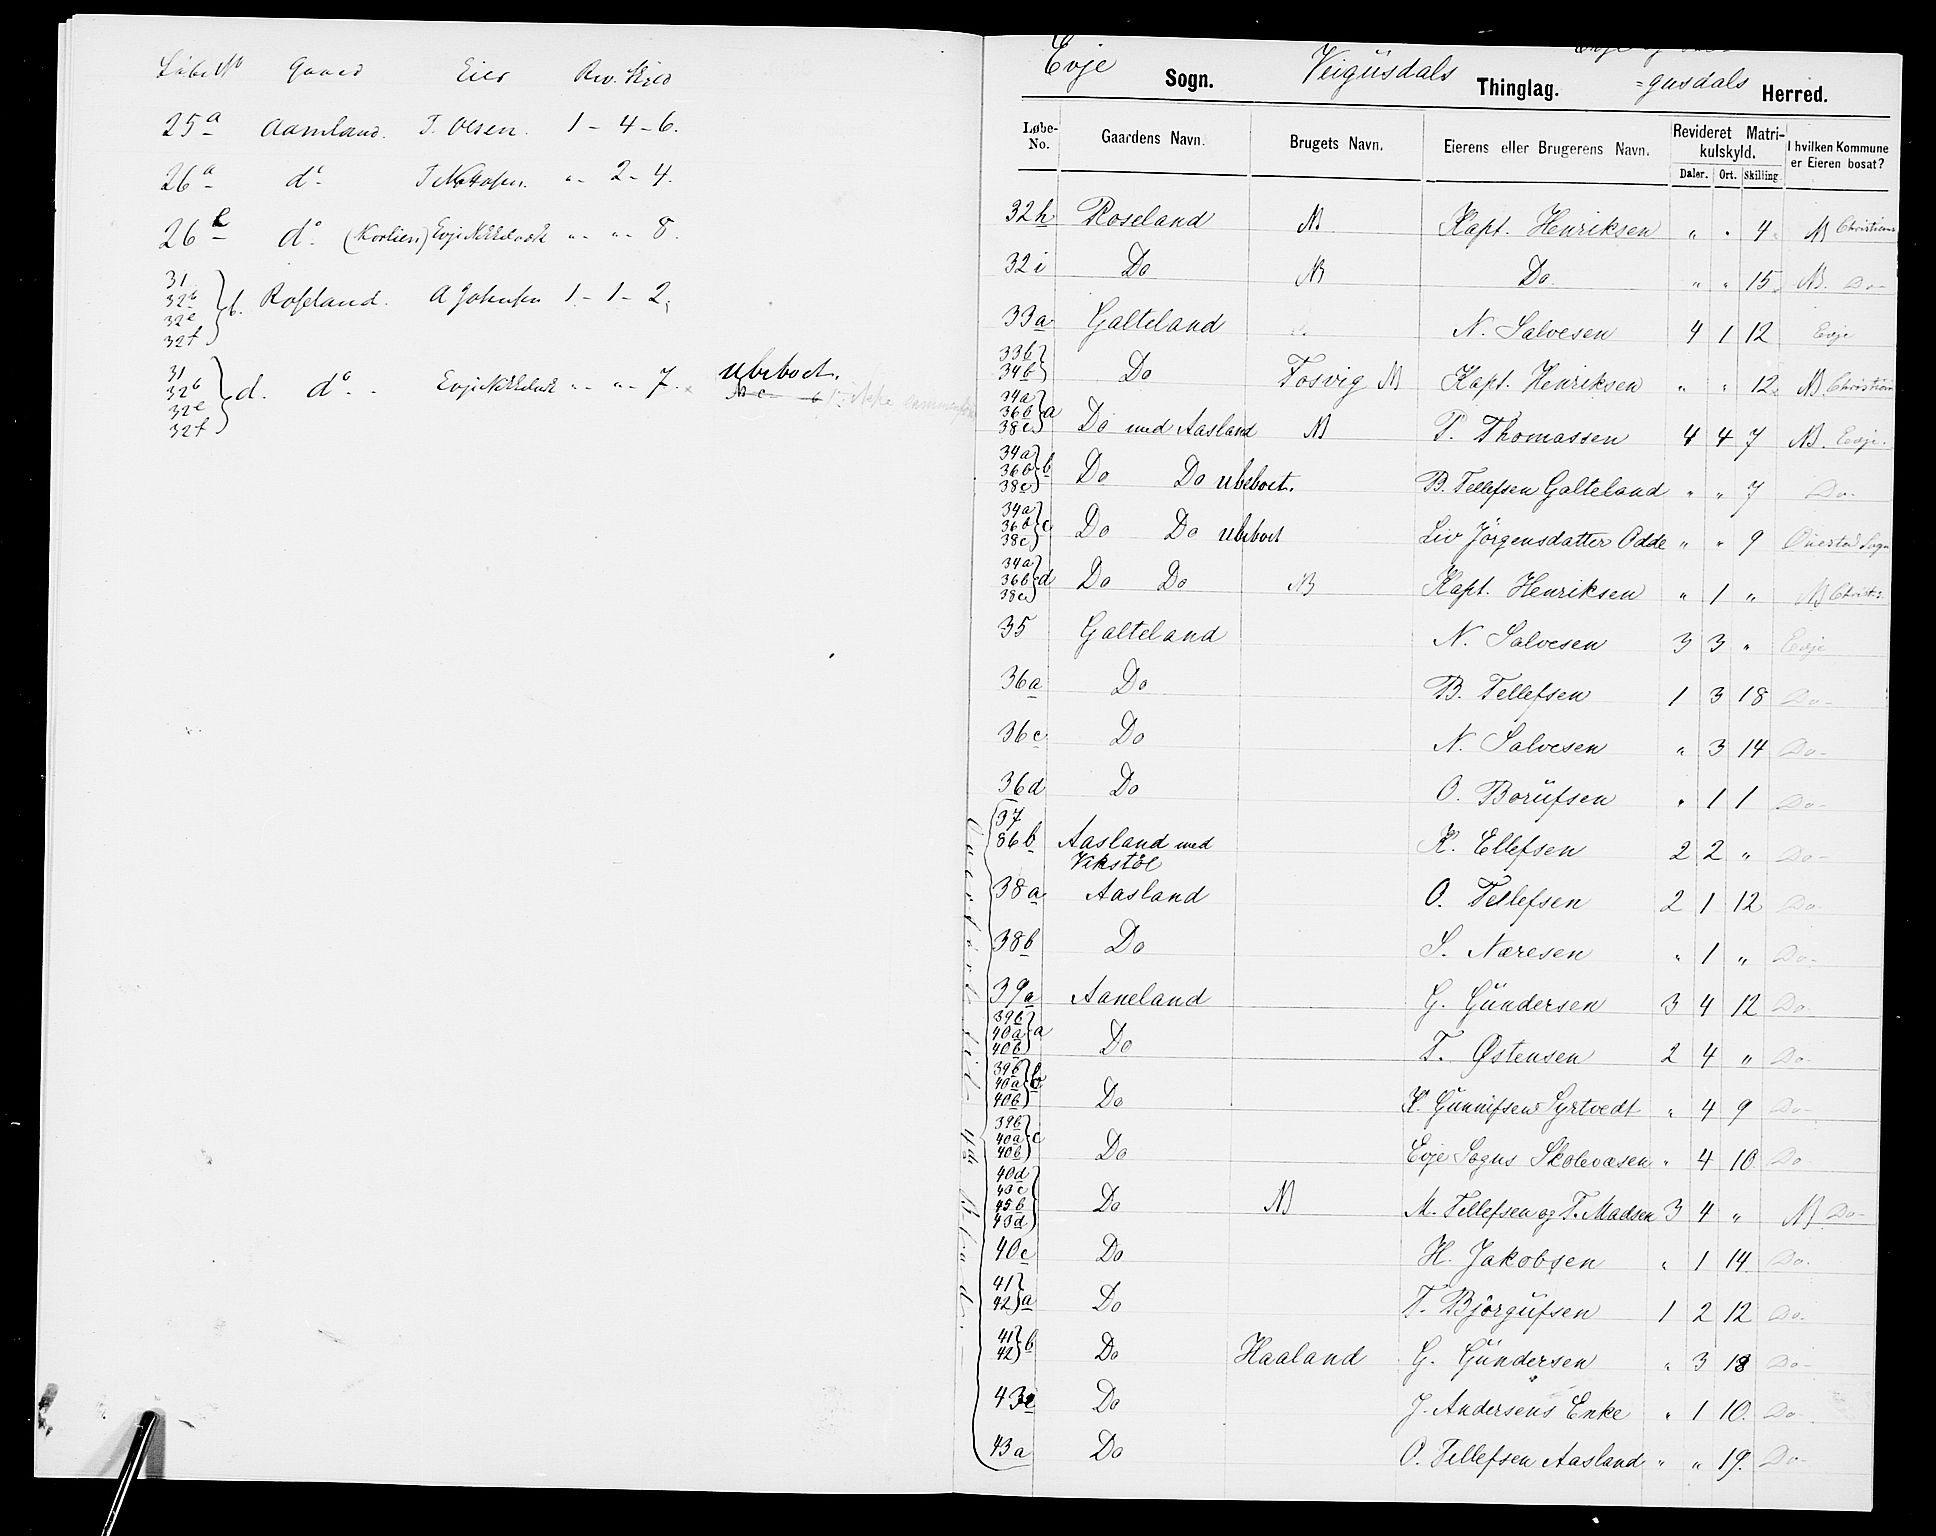 Løbe No Gaard Eier Rev. Skyld
25a Aamland. T. Olsen. 1 - 4 - 6.
26a do „ - 2 - 4.
26b do (Kortlien) Evje Nikkelverk „ - „ - 8.
31 32b 32e 32f } b. Rosseland. A Johnsen 1 - 1 - 2.
31 32b 32e 32f } d. do - Evje Nikkelverk „ - „ - 7. ubeboet.
Evje Sogn. Veigusdals Thinglag. =gusdals Herred.
Løbe-No. Gaardens Navn. Brugets Navn. Eierens eller Brugerens Navn. Revideret Matrikulskyld. I hvilken Kommune er Eieren bosat?
Daler. Ort. Skilling
32h Roseland NB Kapt. Henriksen „ „ 4 NB Christians
32i Do NB Do „ „ 15 NB. Do
33a Galteland N. Salvesen 4 1 12 Evje
33b 34b } Do Fosvig NB Kapt. Henriksen „ „ 12 NB Christian
34a 36b 38c } a Do med Aasland NB T. Thomassen 4 4 7 NB. Evje.
34a 36b 38c } b Do Do ubeboet. B. Tellefsen Galteland „ „ 7 Do
34a 36b 38c } c Do Do ubeboet Liv Jörgensdatter Odde „ „ 9 Øiestad Sogn
34a 36b 38c } d Do Do NB Kapt. Henriksen „ 1 „ NB Christ:
35 Galteland N. Salvesen 3 3 „ Evje
36a Do B. Tellefsen 1 3 18 Do
36c Do N. Salvesen „ 3 14 Do
36d Do O. Borufsen „ 1 1 Do
37 36b Aasland med Vikstöl K. Ellefsen 2 2 „ Do
38a Aasland O. Tellefsen 2 1 12 Do
38b Do S. Næresen „ 1 „ Do
39a Aaneland G. Gundersen 3 4 12 Do
39b 40a 40b } a Do T. Østensen 2 4 „ Do
39b 40a 40b } b Do K. Gunnufsen Syrtvedt „ 4 9 Do
39b 40a 40b } c Do Evje Sogns Skolevæsen „ 4 10 Do
40d 43c 45b 43d } Do NB M. Tellefsen og T. Madsen 3 4 „ NB Do
40c Do H. Jakobsen „ 1 14 Do
41 42 } a Do T. Björgufsen 1 2 12 Do
41 42 } b Do Haaland G. Gundersen „ 3 18 Do
43e Do J. Andersens Enke „ 1 10. Do
43a Do O. Tellefsen Aasland „ „ 19. Do